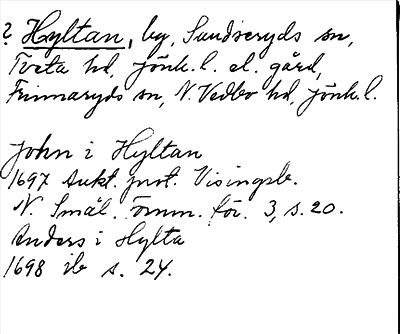 ? Hyltan, by, Sandseryds sn,
Tveta hd, Jönk. l. el. gård,
Finnaryds sn, N. Vedbo hd, Jönk. l.
John i Hyltan
1697 Aukt. prot. Visingsb.
N. Smål. Ömm. för. 3, s. 20.
Anders i Hylta
1698 ib s. 24.